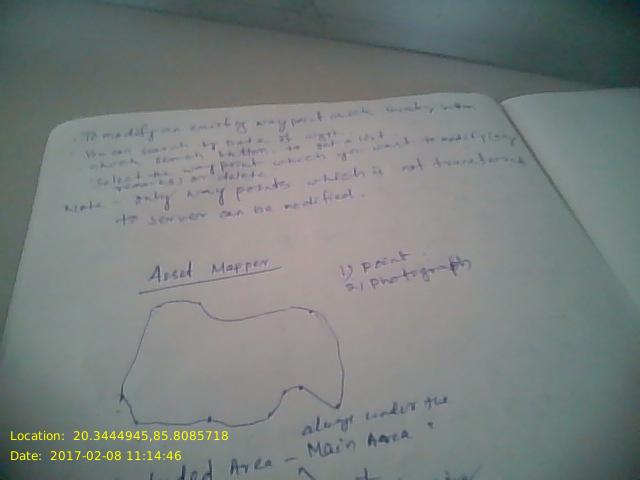 To modify an existing way point check existing button.
You can search by Date
check search button to get a list.
Select the way point which you want to modify (say
remarks) or delete
Note - only way points which is not transferred
to server can be modified.
Asset Mapper
1) point
2) photograph
always under the
Area - Main Area
Location: 20.3444945,85.8085718
Date: 2017-02-08 11:14:46